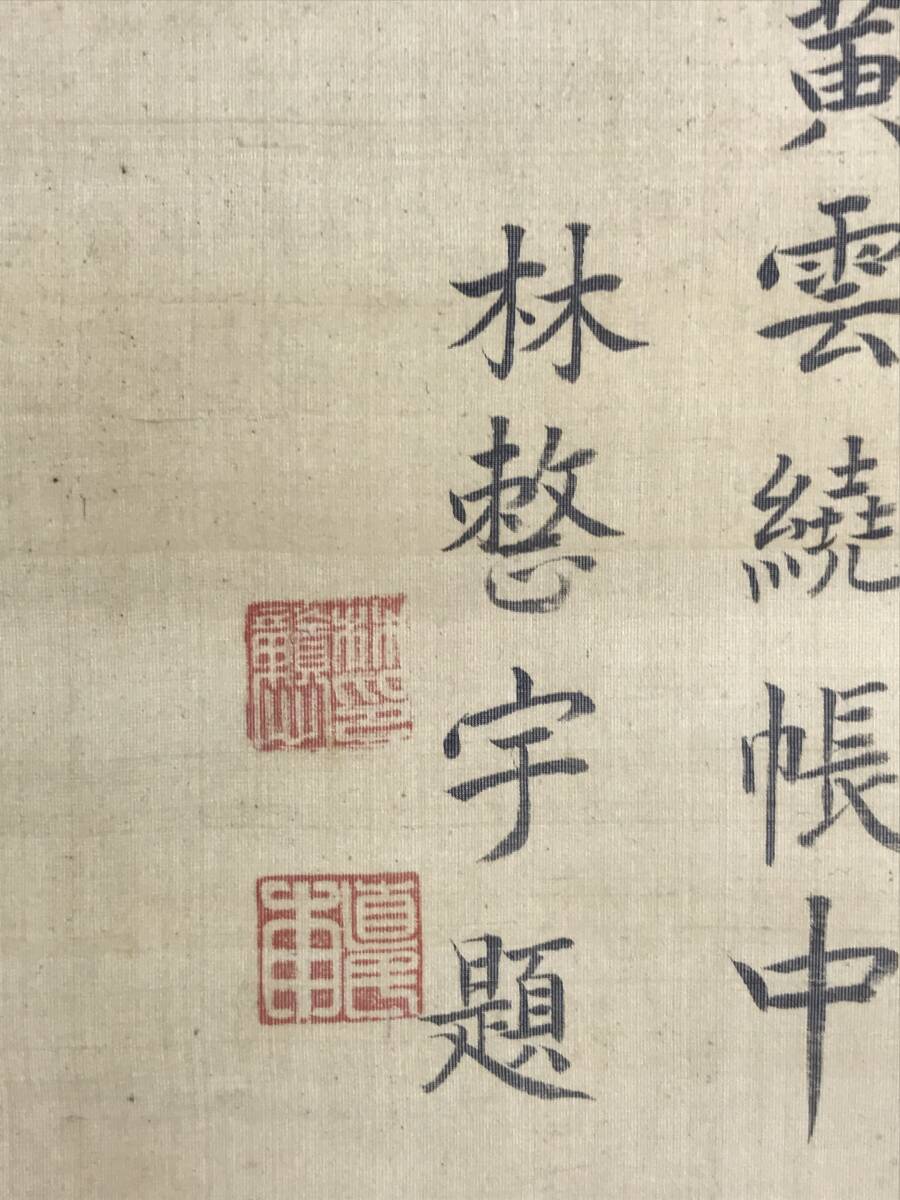 黄雲繞帳中
林整宇題
直民